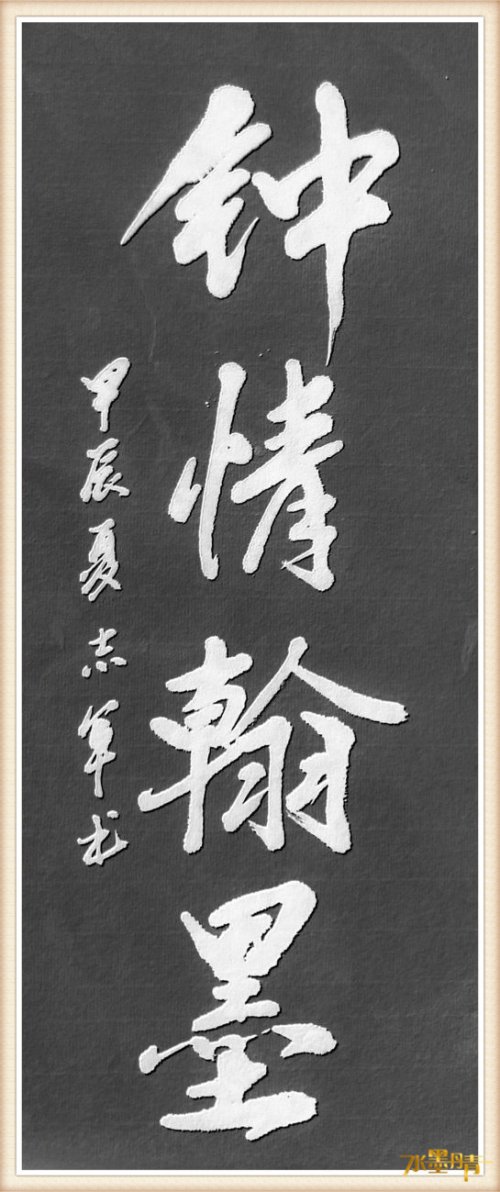 钟情翰墨
甲辰夏志军书
水墨晴